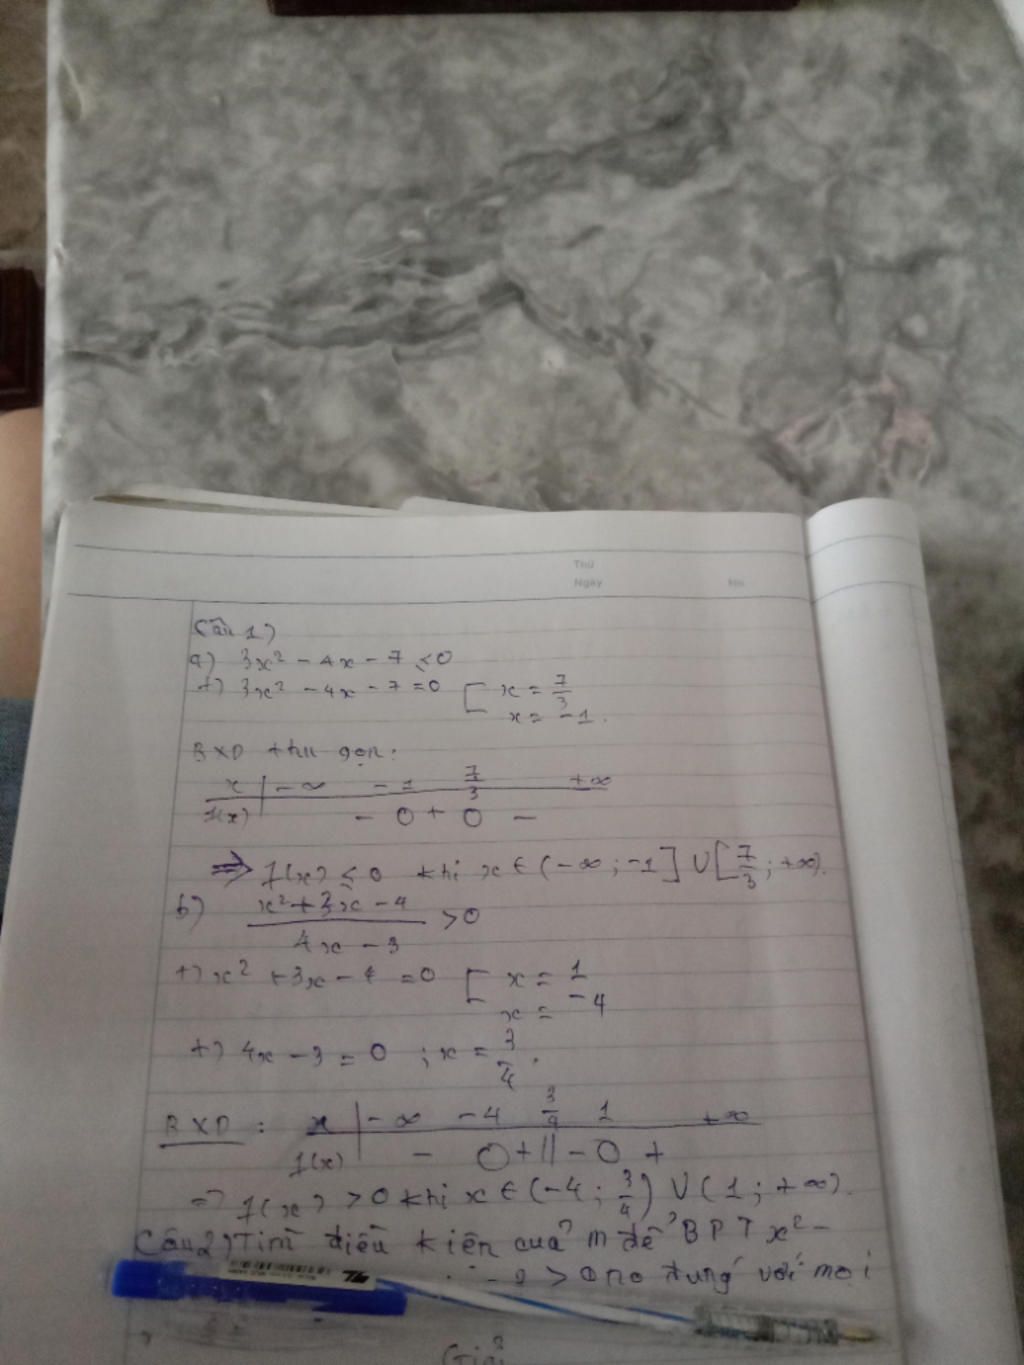 Thứ
Ngày No.
Câu 1)
a) 3x² - 4x - 7 ≤ 0
+) 3x² - 4x - 7 = 0 [ x = 7/3
x = -1.
BXD thu gọn:
x | -∞ -1 7/3 +∞
f(x) - 0 + 0 -
=> f(x) ≤ 0 khi x ∈ (-∞; -1] ∪ [7/3; +∞).
b) (x² + 3x - 4)/(4x - 3) > 0
+) x² + 3x - 4 = 0 [ x = 1
x = -4
+) 4x - 3 = 0 ; x = 3/4.
BXD : x | -∞ -4 3/4 1 +∞
f(x) - 0 + || - 0 +
=> f(x) > 0 khi x ∈ (-4; 3/4) ∪ (1; +∞).
Câu 2) Tìm điều kiện của m để BPT x² -
> 0 no đung với mọi
Giải